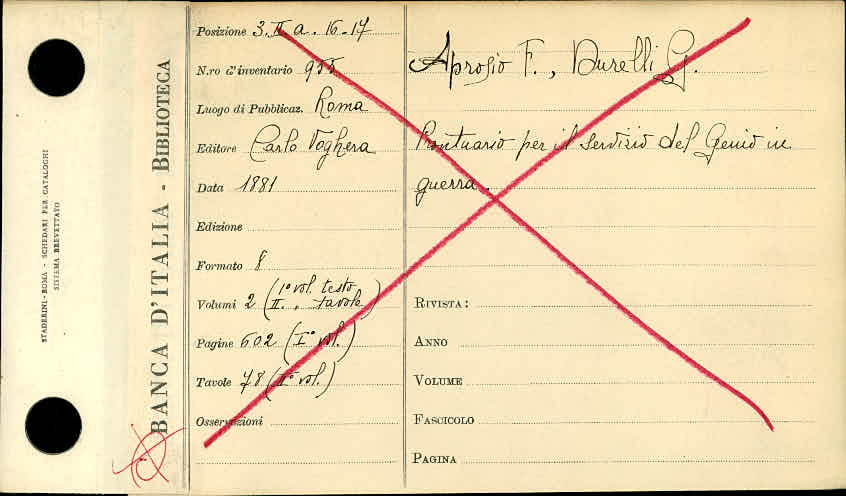 STADERINI-ROMA - SCHEDARI PER CATALOGHI
SISTEMA BREVETTATO
BANCA D'ITALIA - BIBLIOTECA
Posizione 3. II a. 16-17
N.ro d'inventario 955
Luogo di Pubblicaz. Roma
Editore Carlo Voghera
Data 1881
Edizione
Formato 8
Volumi 2 (1° vol. testo
II. " tavole)
Pagine 602 (I° vol.)
Tavole 78 (II° vol.)
Osservazioni
Aprosio F., Durelli G.
Prontuario per il servizio del Genio in
guerra.
RIVISTA:
ANNO
VOLUME
FASCICOLO
PAGINA